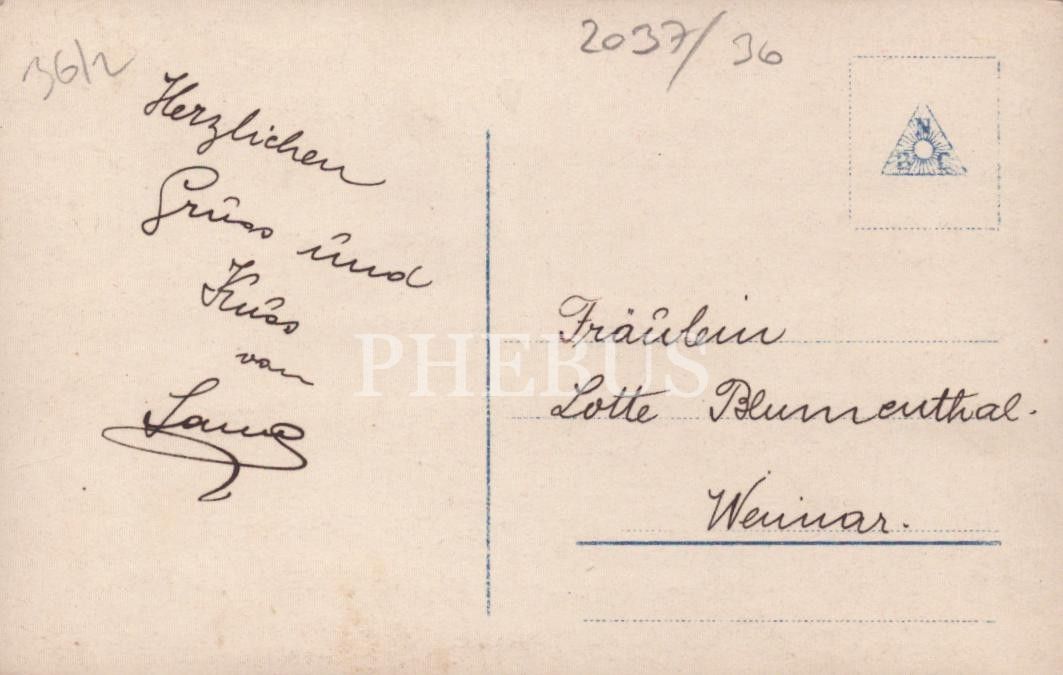 36/2
2037/36
Herzlichen
Grüss ünd
Küss
von
N
B C
Fräulein
Lotte Blumenthal.
Weimar.
PHEBUS